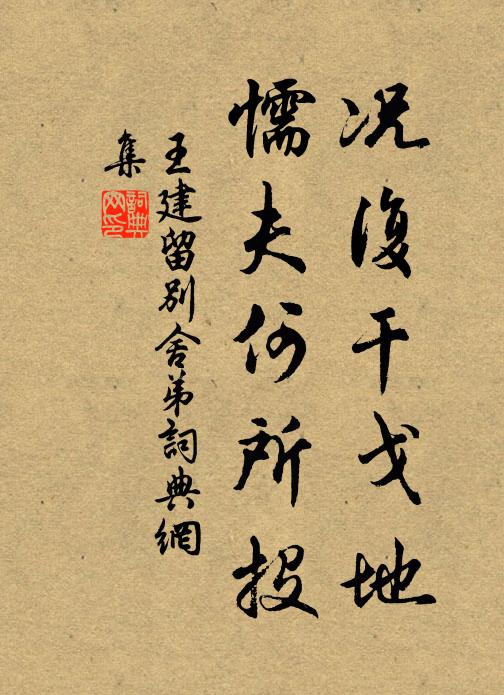 況復干戈地
懦夫何所投
王建留別舍弟詞典網
集
詞典
网印